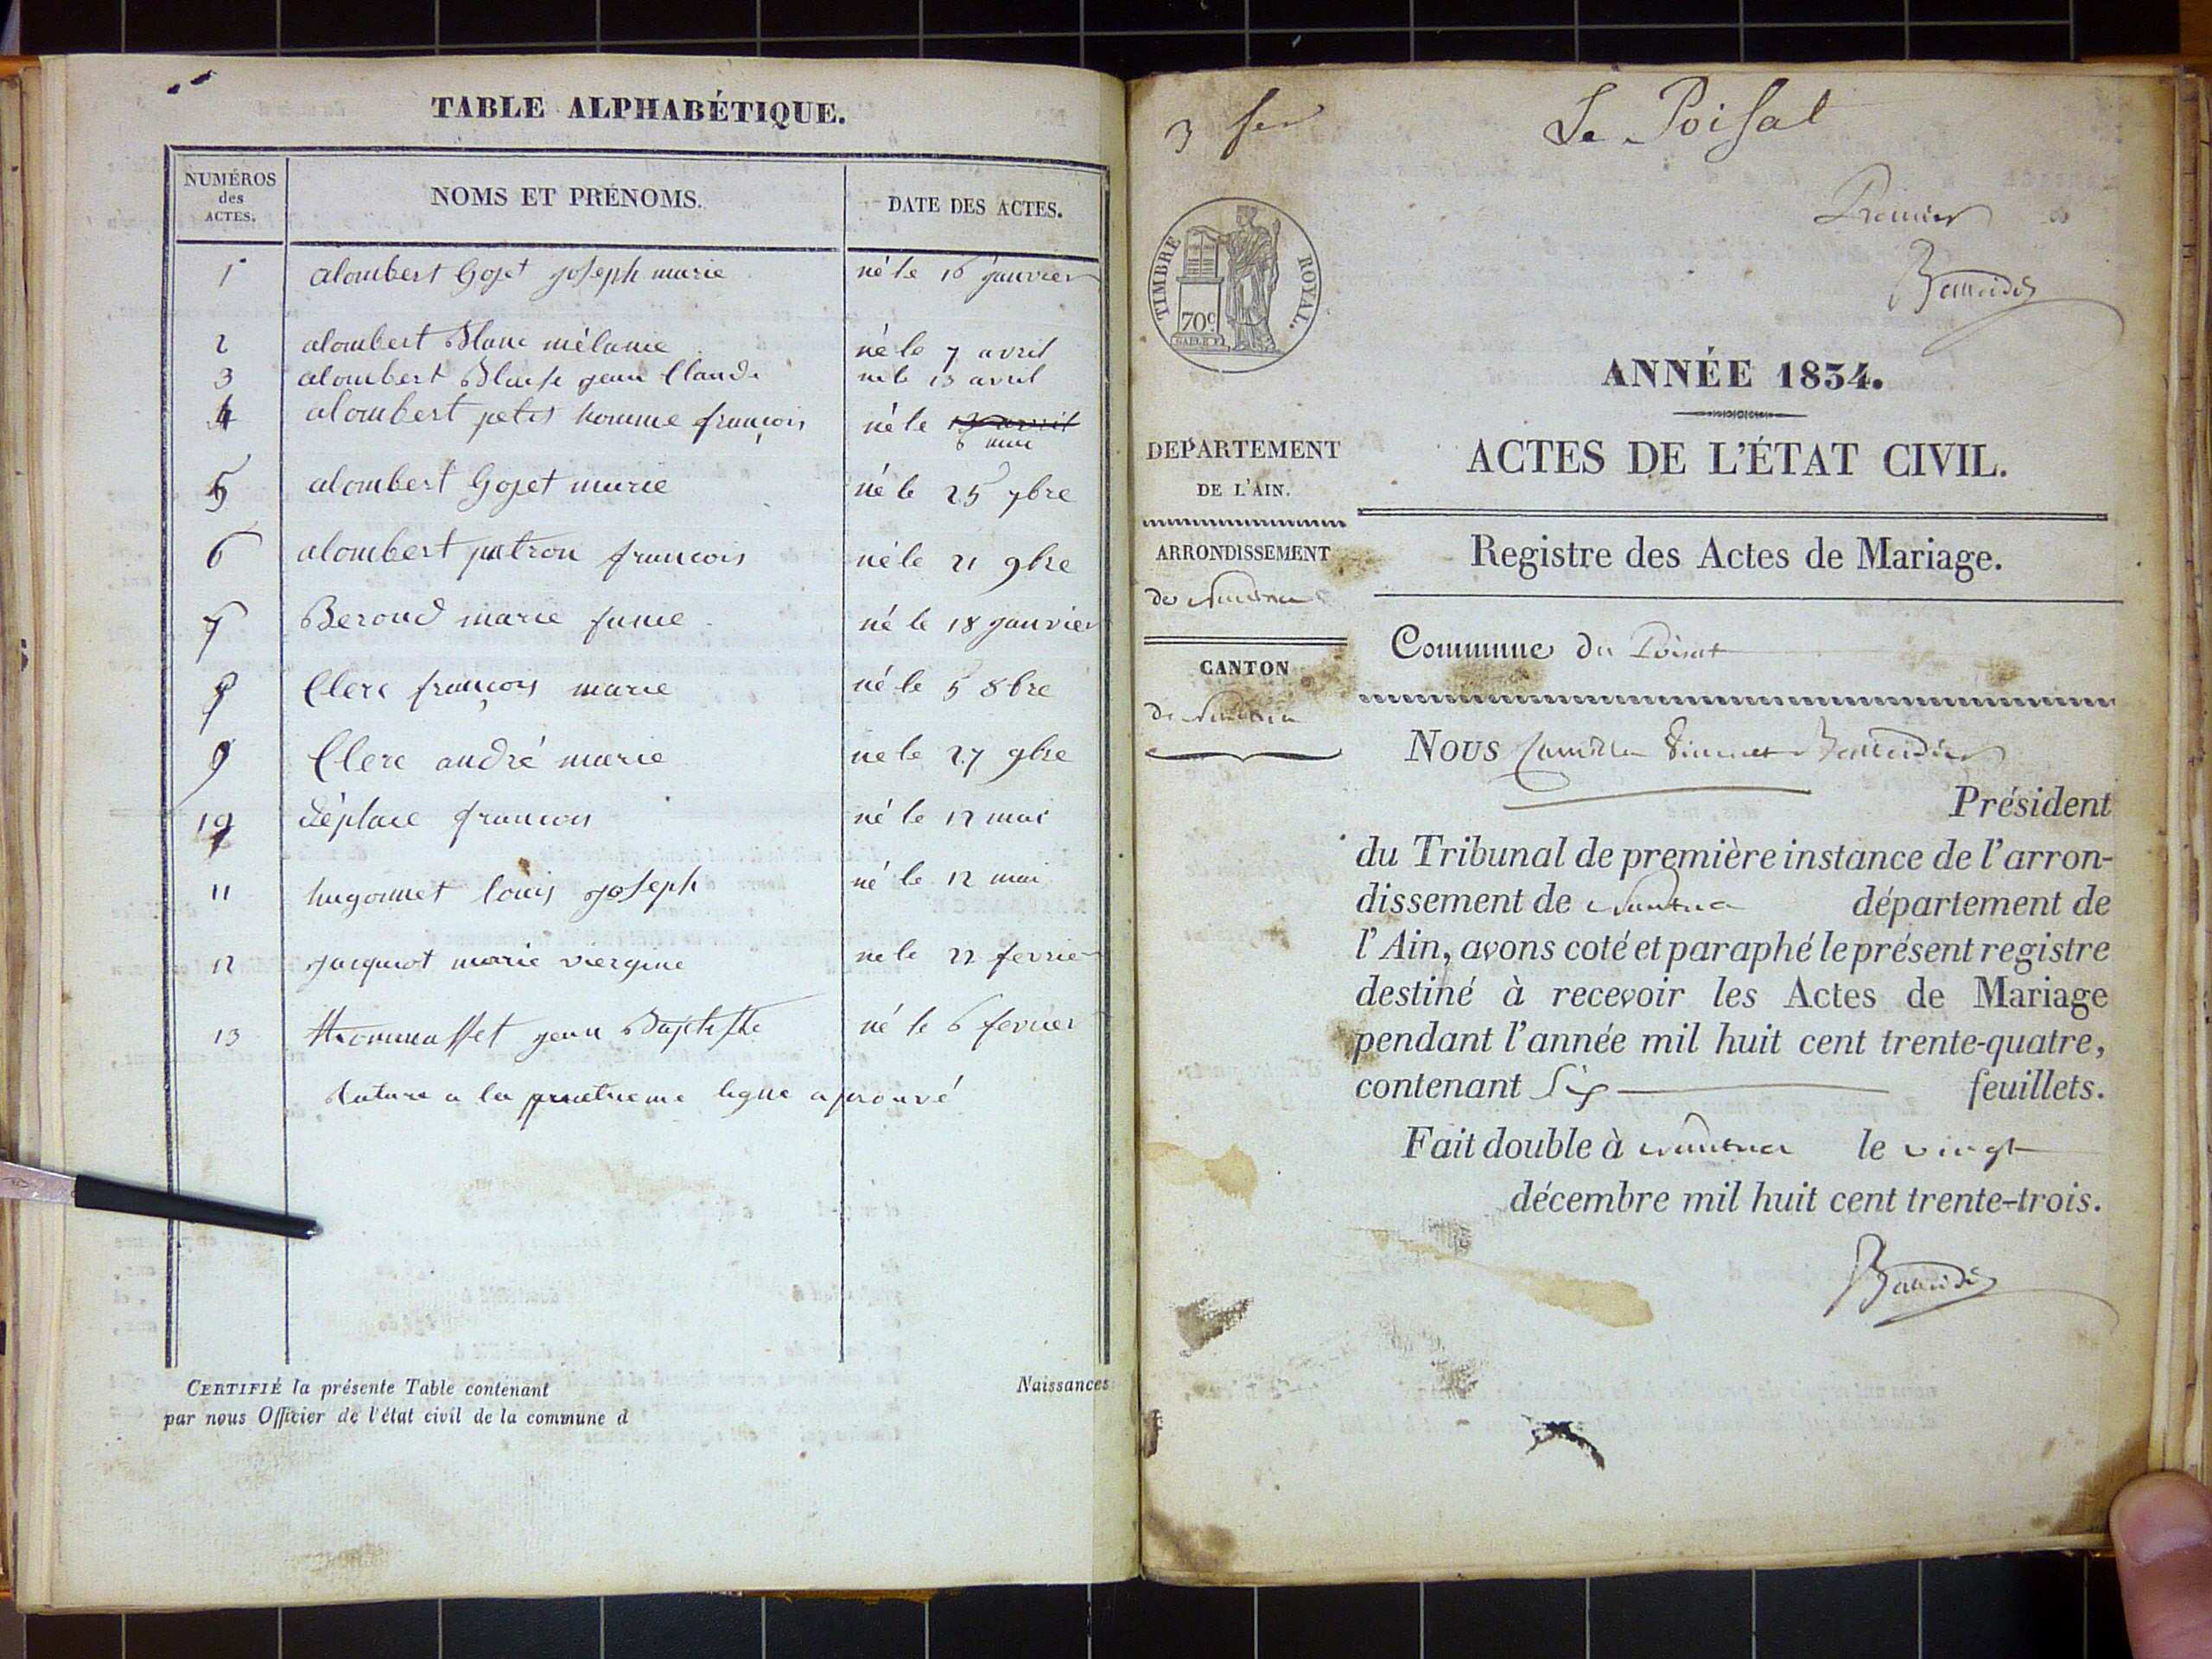 TABLE ALPHABÉTIQUE.
NUMÉROS des ACTES. NOMS ET PRÉNOMS. DATE DES ACTES.
1 alombert Gojet joseph marie né le 16 janvier
2 alombert Blanc mélanie né le 7 avril
3 alombert Blaise jean Claude né le 13 avril
4 alombert petit homme françois né le 13 avril
6 mai
5 alombert Gojet marie né le 25 7bre
6 alombert patron francois né le 21 9bre
7 Beroud marie né le 18 janvier
8 Clerc françois marie né le 5 8bre
9 Clerc andré marie né le 27 9bre
10 déplace francois né le 12 mai
11 hugonnet louis joseph né le 12 mai
12 jacquiot marie viergine né le 22 fevrier
13 thommasset jean Baptiste né le 6 fevrier
Rature a la quatrieme ligne aprouvé
CERTIFIÉ la présente Table contenant Naissances
par nous Officier de l'état civil de la commune d
3 fer
Le Poisat
Premier
TIMBRE ROYAL.
70c
ANNÉE 1834.
ACTES DE L'ÉTAT CIVIL.
Registre des Actes de Mariage.
DEPARTEMENT
DE L'AIN.
ARRONDISSEMENT
de Nantua
CANTON
de Nantua
Commune du Poisat
NOUS Camille
Président
du Tribunal de première instance de l'arron-
dissement de Nantua département de
l'Ain, avons coté et paraphé le présent registre
destiné à recevoir les Actes de Mariage
pendant l'année mil huit cent trente-quatre,
contenant Six feuillets.
Fait double à Nantua le vingt
décembre mil huit cent trente-trois.